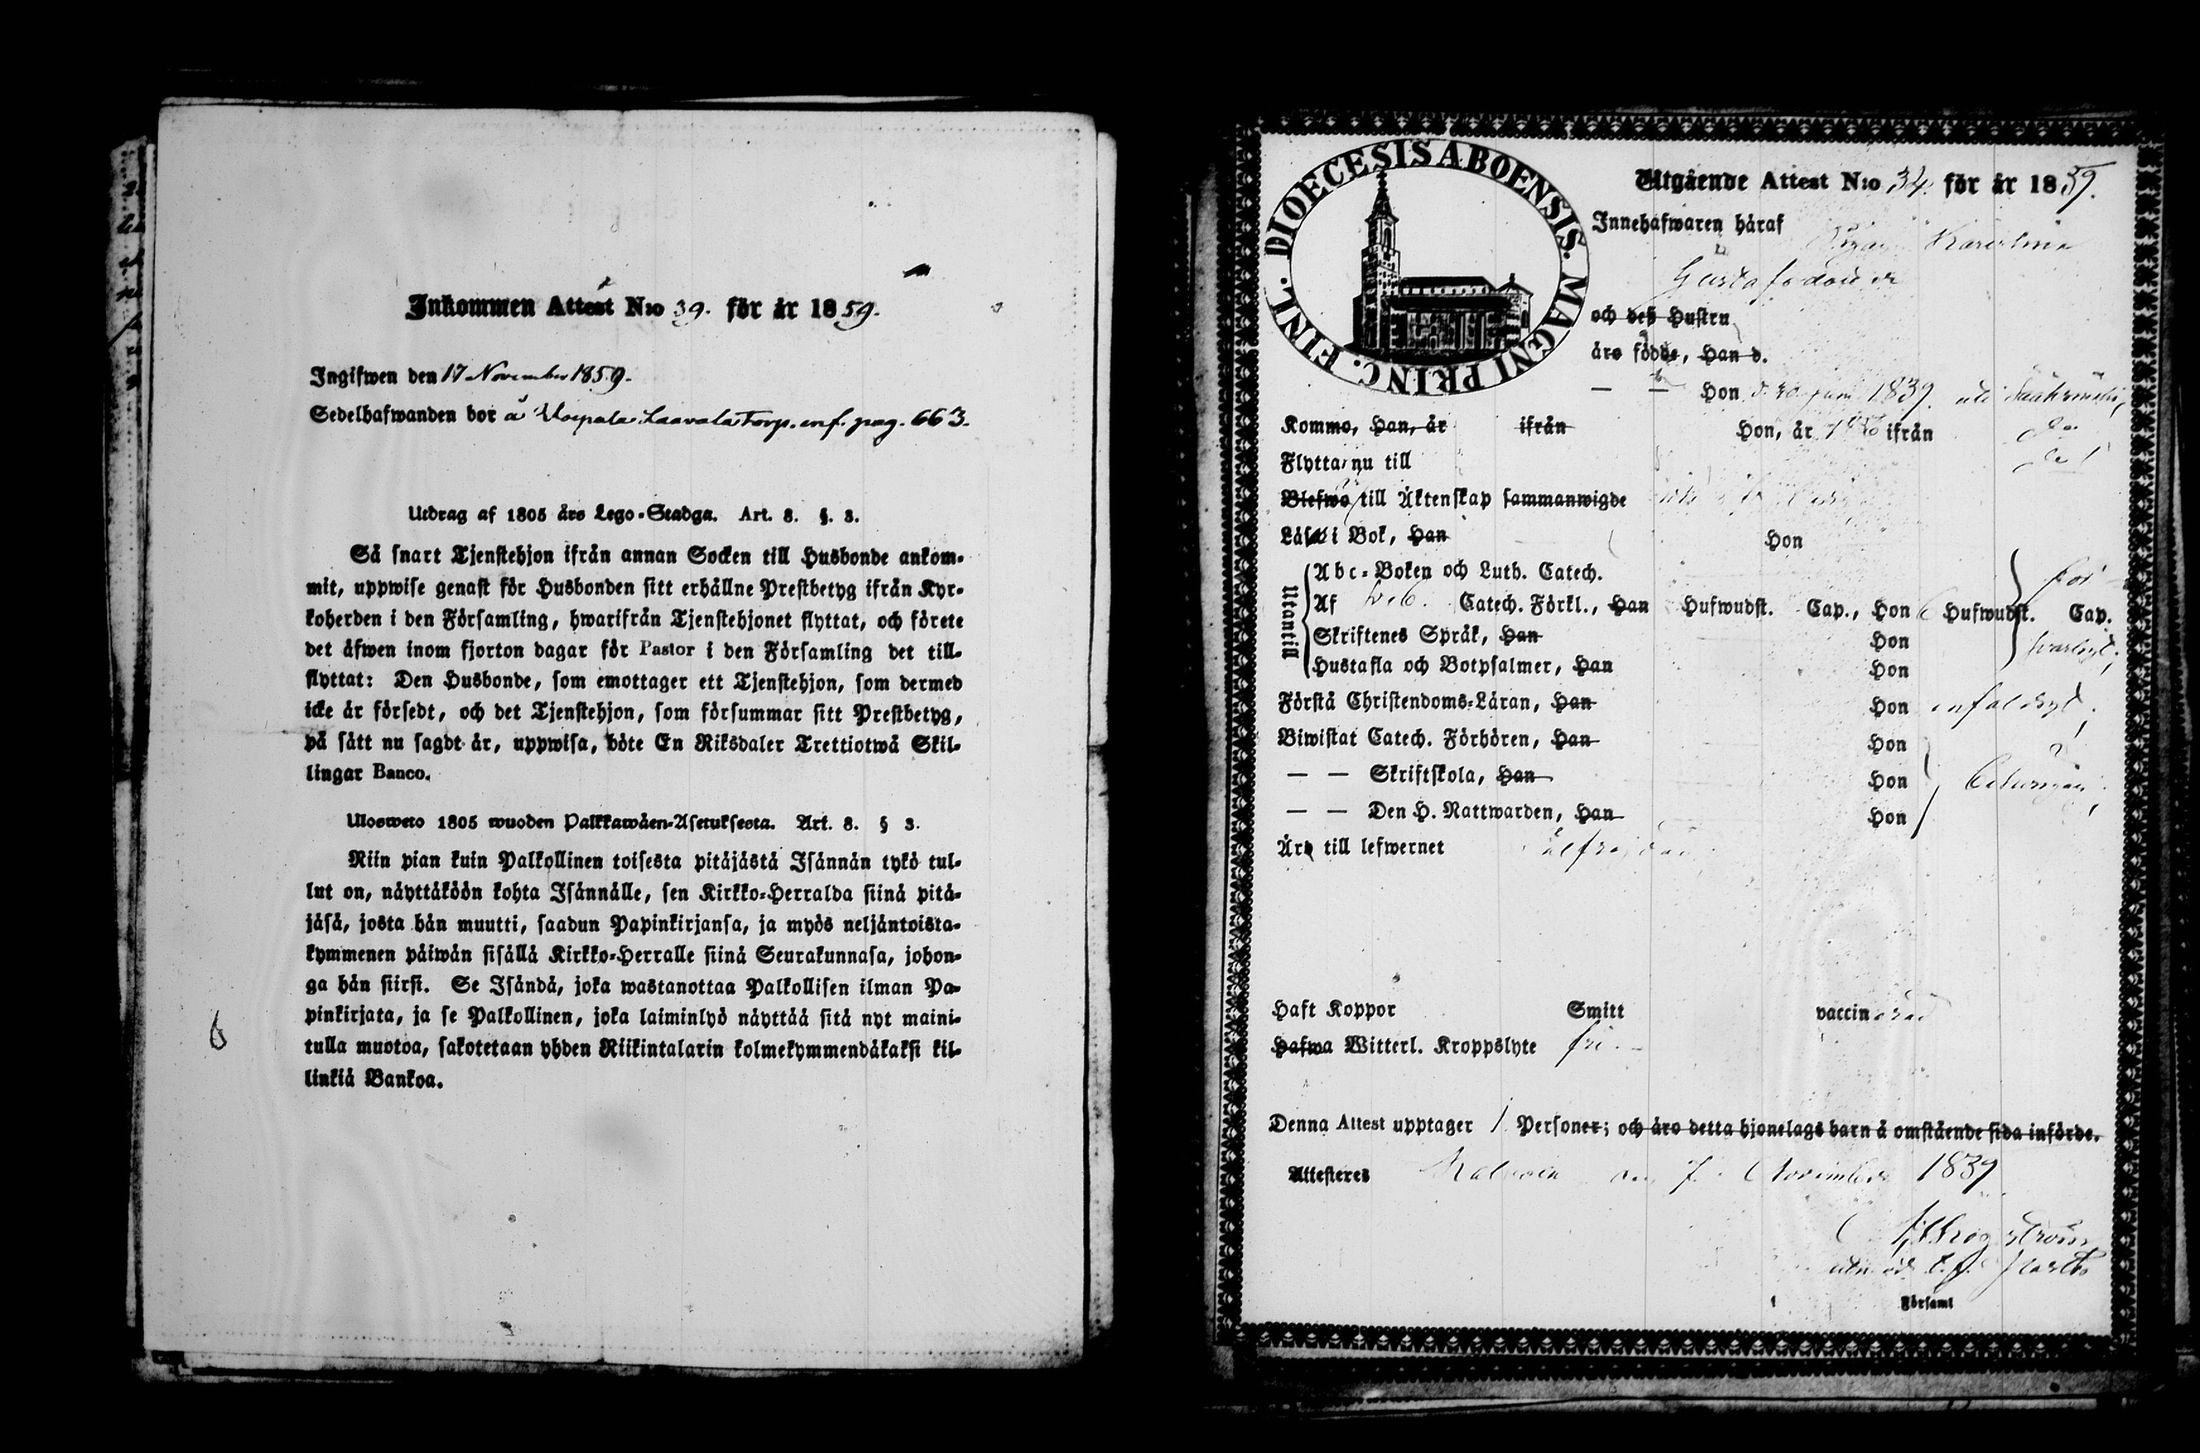 Inkommen Attest N:o 39. för år 1859.
Ingifwen den 17 November 1859.
Sedelhafwanden bor å Laavala Torp. inf. pag. 663.
Utdrag af 1805 års Lego-Stadga. Art. 8. §. 3.
Så snart Tjenstehjon ifrån annan Socken till Husbonde ankom-
mit, uppwise genast för Husbonden sitt erhållne Prestbetyg ifrån Kyr-
koherden i den Församling, hwarifrån Tjenstehjonet flyttat, och förete
det äfwen inom fjorton dagar för Pastor i den Församling det till-
flyttat: Den Husbonde, som emottager ett Tjenstehjon, som dermed
icke är försedt, och det Tjenstehjon, som försummar sitt Prestbetyg,
på sätt nu sagdt är, uppwisa, böte En Riksdaler Trettiotwå Skil-
lingar Banco.
Ulosweto 1805 wuoden Palkkawäen-Asetuksesta. Art. 8. § 3.
Niin pian kuin Palkollinen toisesta pitäjästä Isännän tykö tul-
lut on, näyttäköön kohta Isännälle, sen Kirkko-Herralda siinä pitä-
jäsä, josta hän muutti, saadun Papinkirjansa, ja myös neljäntoista-
kymmenen päiwän sisällä Kirkko-Herralle siinä Seurakunnasa, johon-
ga hän siirsi. Se Isändä, joka wastanottaa Palkollisen ilman Pa-
pinkirjata, ja se Palkollinen, joka laiminlyö näyttää sitä nyt maini-
tulla muotoa, sakotetaan yhden Riikintalarin kolmekymmendäkaksi kil-
linkiä Bankoa.
6
DIOECESIS ABOENSIS. MAGNI PRINC. FINL.
Utgående Attest N:o 34. för år 1859.
Innehafwaren häraf Pigan Karolina
Gustafsdotter
och deß Hustru
äro födde, Han d.
— — Hon d. 20 juni 1839
Kommo, Han, år ifrån Hon, år ifrån
Flytta nu till
Blefwo till Äktenskap sammanwigde
Läsa i Bok, Han Hon
Utantill
Abc-Boken och Luth. Catech.
Af Catech. Förkl., Han Hufwudst. Cap., Hon Hufwudst. Cap.
Skriftenes Språk, Han Hon
Hustafla och Botpsalmer, Han Hon
för-
svarligt;
Förstå Christendoms-Läran, Han Hon enfaldigt;
Biwistat Catech. Förhören, Han Hon
— — Skriftskola, Han Hon
— — Den H. Nattwarden, Han Hon
Äro till lefwernet välfrejdad
Haft Koppor Smitt vaccinerad
Hafwa Witterl. Kroppslyte fri.
Denna Attest upptager 1 Personer; och äro detta hjonelags barn å omstående sida införde.
Attesteres den 7 November 1859
Församl